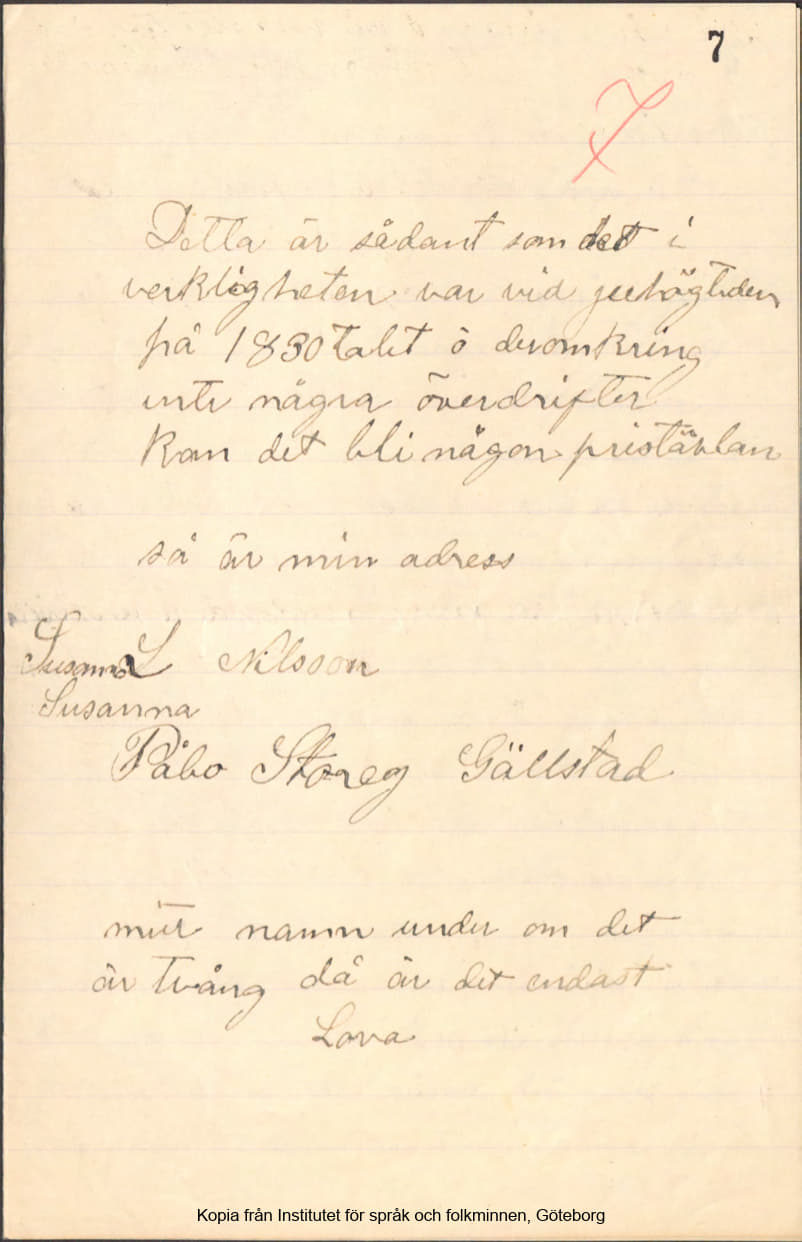 7
7
Detta är sådant som det i
verkligheten var vid julhögtiden
på 1830talet ö deromkring
inte några överdrifter
kan det bli någon pristävlan
så är min adress
Susanna L Nilsson
Susanna
Påbo Storeg Gällstad
mitt namn under om det
är tvång då är det endast
Lova
Kopia från Institutet för språk och folkminnen, Göteborg